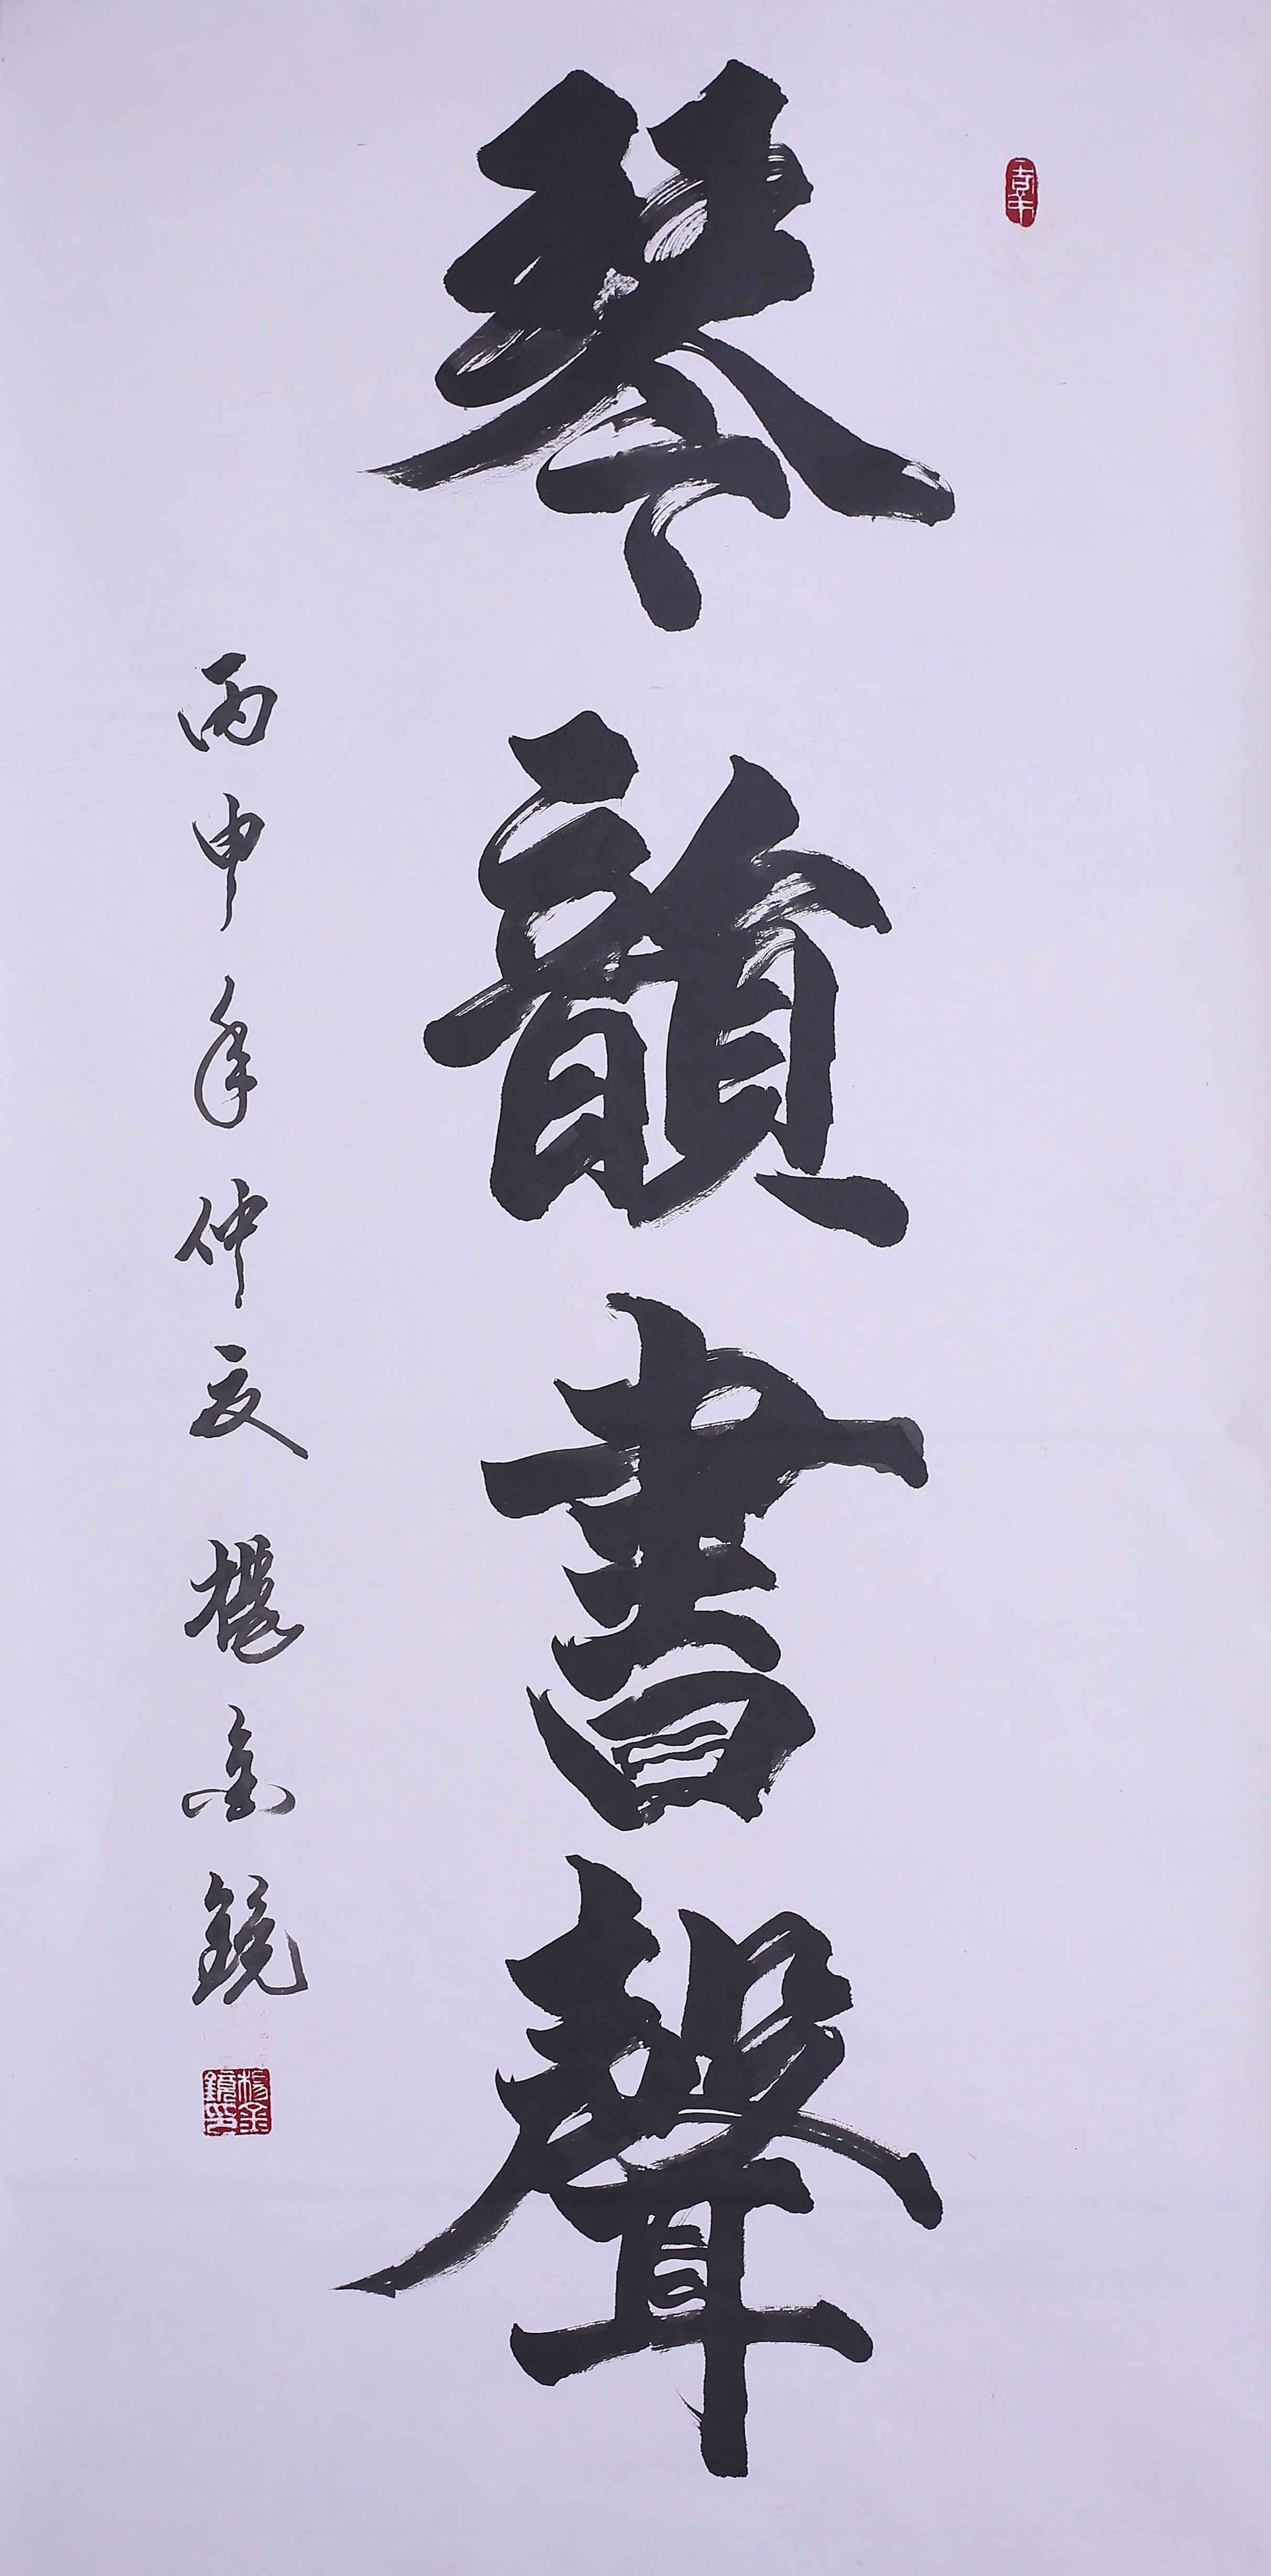 琴韻書聲
丙申年仲夏 楊金鏡
楊金鏡印